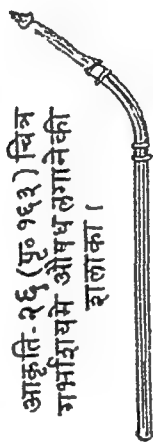 आकृति-२६ (पृ० १६३) चित्र
गर्भाशयमे औषध लगानेकी
शलाका ।